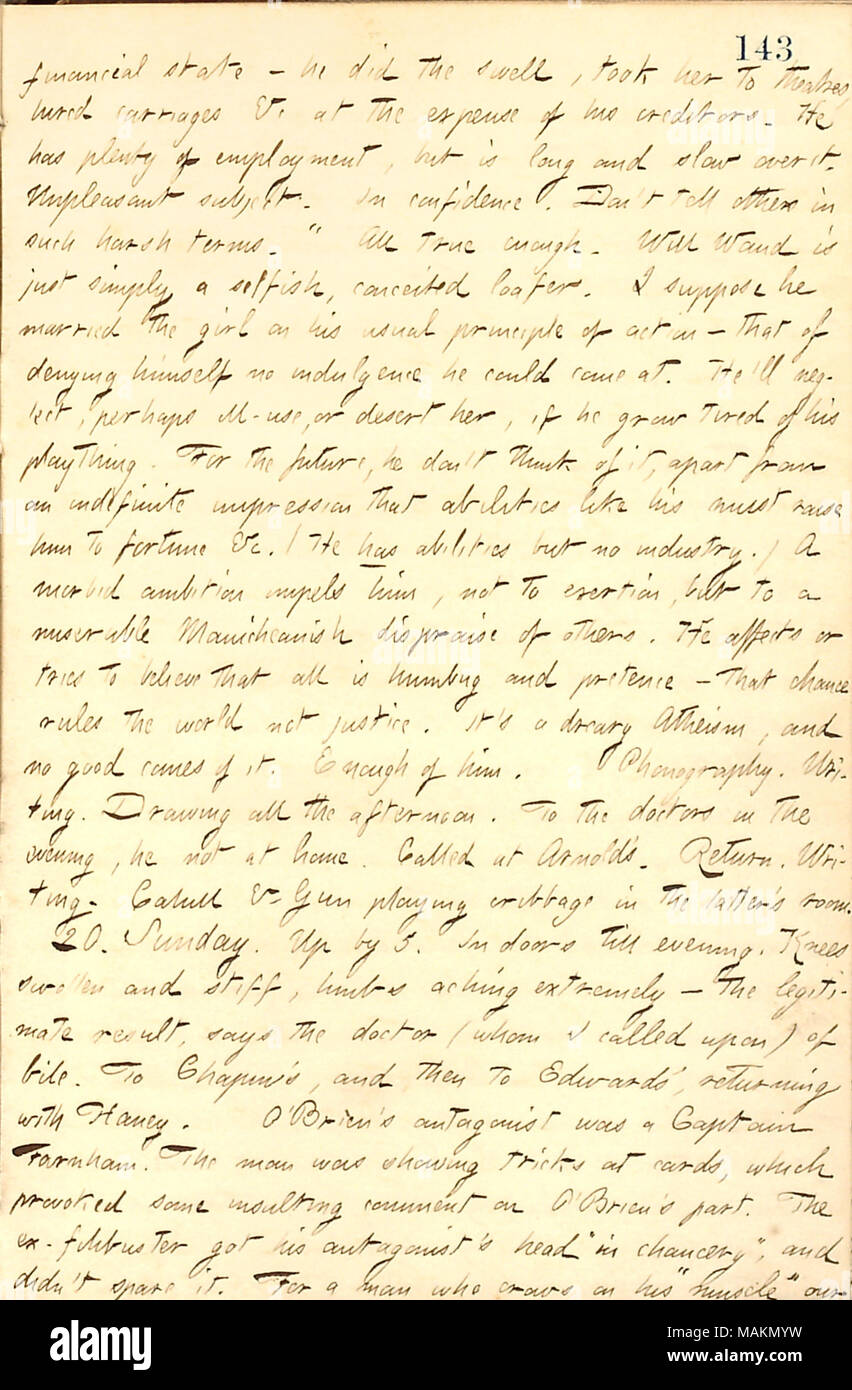 143
financial state - he did the swell, took her to theatres,
hired carriages &c at the expense of his creditors. He
has plenty of employment, but is long and slow over it.
Unpleasant subject. In confidence. Don't tell others in
such harsh terms." All true enough. Will Waud is
just simply a selfish, conceited loafer. I suppose he
married the girl on his usual principle of action - that of
denying himself no indulgence he could come at. He'll neg-
lect, perhaps ill-use, or desert her, if he grow tired of his
plaything. For the future, he don't think of it, apart from
an indefinite impression that abilities like his must raise
him to fortune &c. (He has abilities but no industry.) A
morbid ambition impels him, not to exertion, but to a
miserable Manicheanish dispraise of others. He affects or
tries to believe that all is humbug and pretence - that chance
rules the world not justice. It's a dreary Atheism, and
no good comes of it. Enough of him. Phonography. Wri-
ting. Drawing all the afternoon. To the doctors in the
evening, he not at home. Called at Arnold's. Return. Wri-
ting. Cahill & Gun playing cribbage in the latter's room.
20. Sunday. Up by 5. In doors till evening. Knees
swollen and stiff, limbs aching extremely - the legiti-
mate result, says the doctor (whom I called upon) of
bile. To Chapin's, and then to Edwards', returning
with Haney. O'Brien's antagonist was a Captain
Farnham. The man was showing tricks at cards, which
provoked some insulting comment on O'Brien's part. The
ex-filibuster got his antagonist's head "in chancery", and
didn't spare it. For a man who craws on his "muscle" our
alamy
Image ID: MAKMYW
www.alamy.com